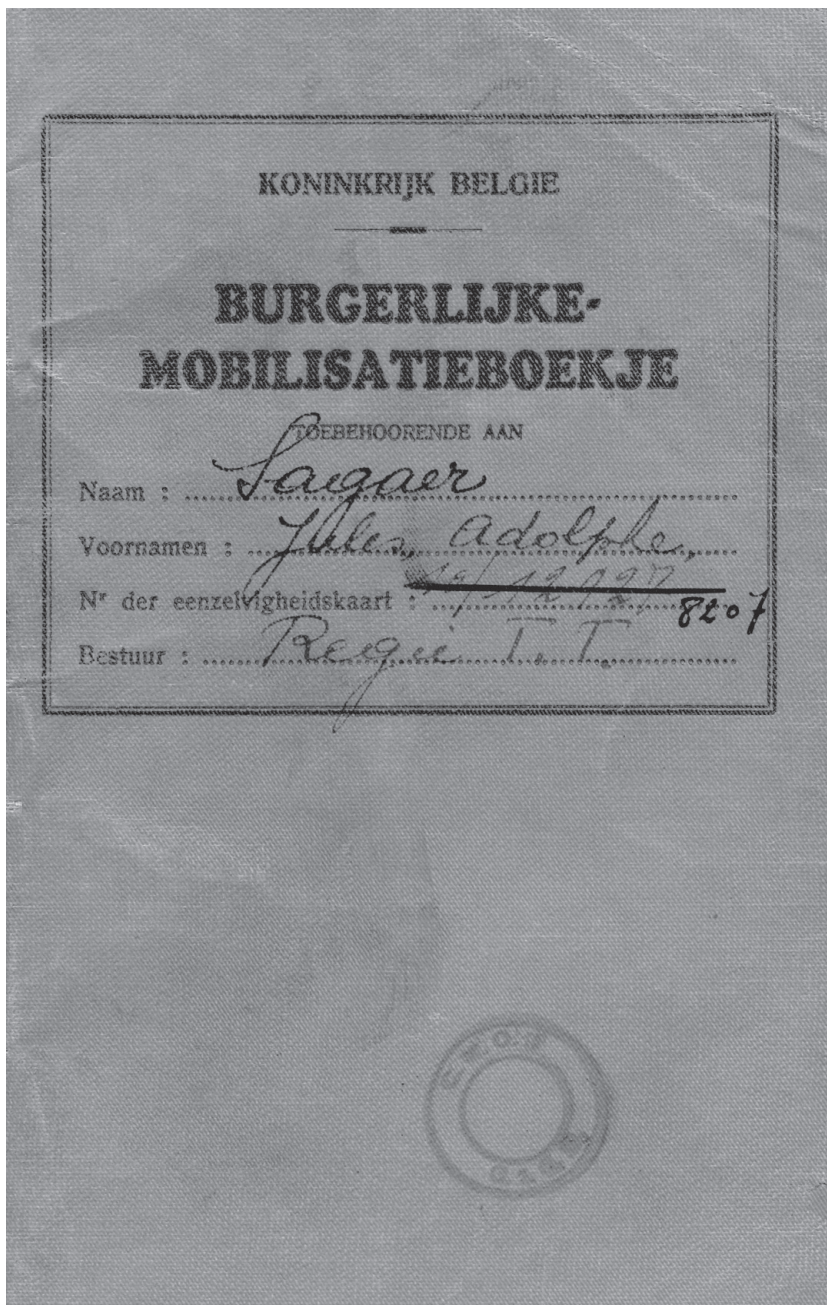 KONINKRIJK BELGIE
BURGERLIJKE-
MOBILISATIEBOEKJE
TOEBEHOORENDE AAN
Naam : Sagaer
Voornamen : Jules, Adolphe,
Nr der eenzelvigheidskaart : 8207
Bestuur : Regie T. T.